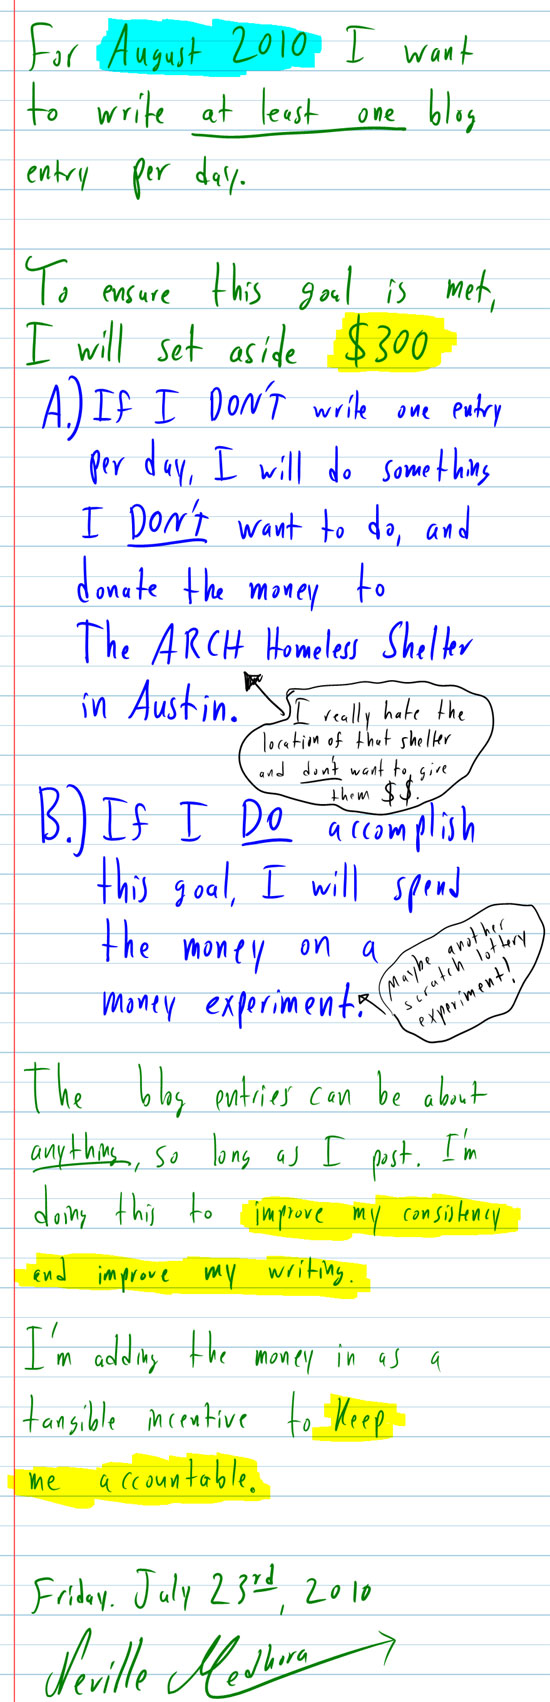 For August 2010 I want
to write at least one blog
entry per day.
To ensure this goal is met,
I will set aside $300
A.) If I DON'T write one entry
per day, I will do something
I DON'T want to do, and
donate the money to
The ARCH Homeless Shelter
in Austin.
I really hate the
location of that shelter
and don't want to give
them $$.
B.) If I DO accomplish
this goal, I will spend
the money on a
money experiment.
Maybe another
scratch lottery
experiment!
The blog entries can be about
anything, so long as I post. I'm
doing this to improve my consistency
and improve my writing.
I'm adding the money in as a
tangible incentive to keep
me accountable.
Friday. July 23rd, 2010
Neville Medhora